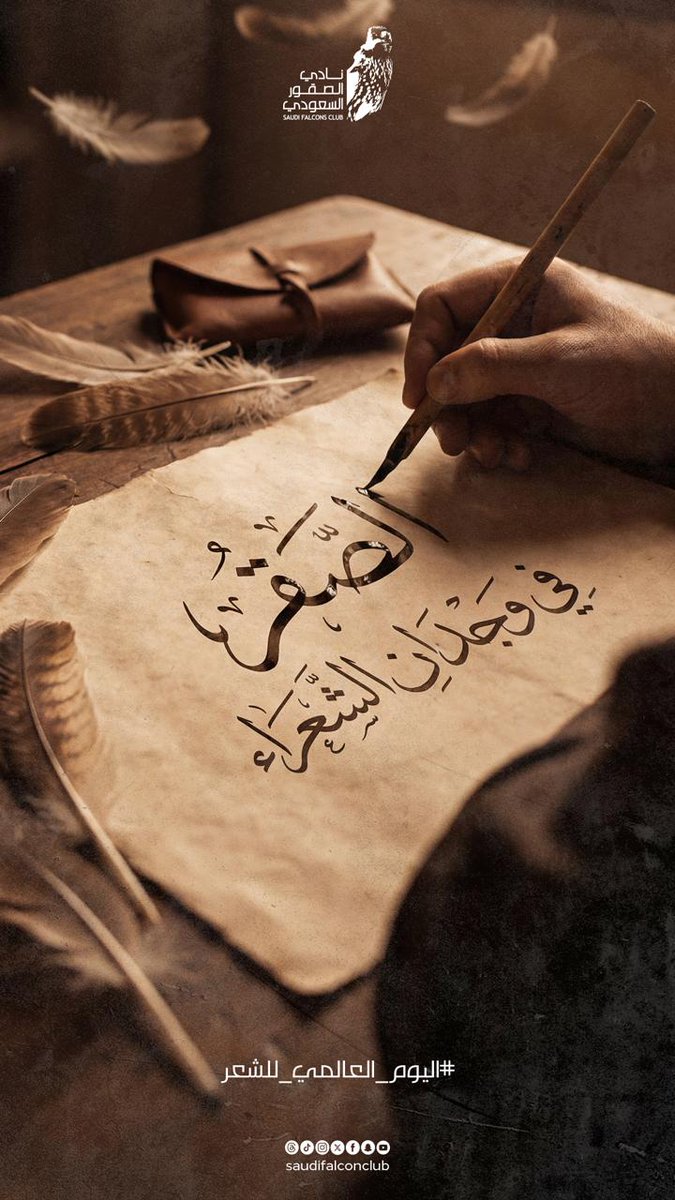 نادي
الصقور
السعودي
SAUDI FALCONS CLUB
الصَّقرُ
فِي وَجْدَانِ الشُّعَرَاء
#اليوم_العالمي_للشعر
saudifalconclub